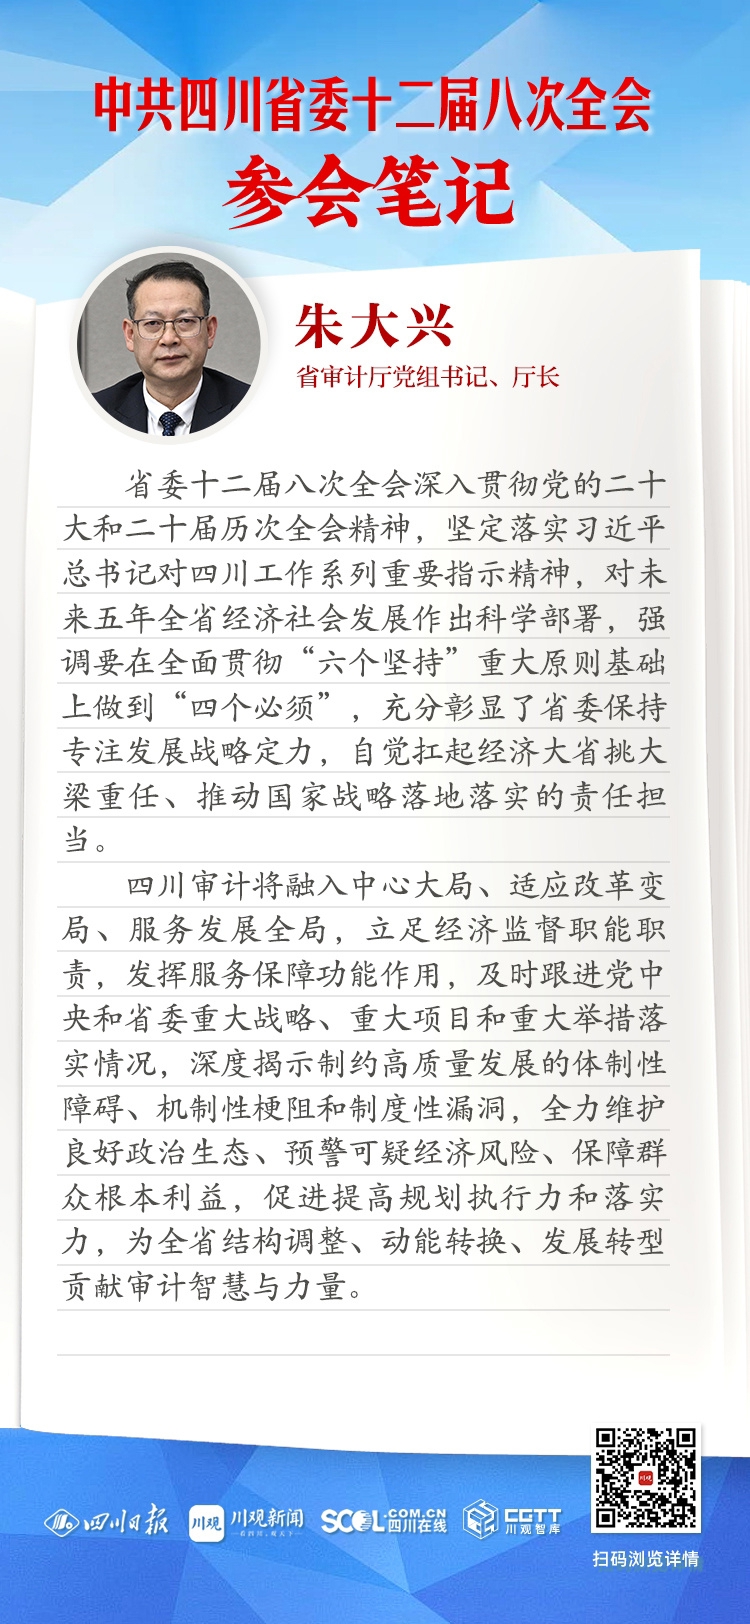 中共四川省委十二届八次全会
参会笔记
朱大兴
省审计厅党组书记、厅长
省委十二届八次全会深入贯彻党的二十
大和二十届历次全会精神，坚定落实习近平
总书记对四川工作系列重要指示精神，对未
来五年全省经济社会发展作出科学部署，强
调要在全面贯彻“六个坚持”重大原则基础
上做到“四个必须”，充分彰显了省委保持
专注发展战略定力，自觉扛起经济大省挑大
梁重任、推动国家战略落地落实的责任担
当。
四川审计将融入中心大局、适应改革变
局、服务发展全局，立足经济监督职能职
责，发挥服务保障功能作用，及时跟进党中
央和省委重大战略、重大项目和重大举措落
实情况，深度揭示制约高质量发展的体制性
障碍、机制性梗阻和制度性漏洞，全力维护
良好政治生态、预警可疑经济风险、保障群
众根本利益，促进提高规划执行力和落实
力，为全省结构调整、动能转换、发展转型
贡献审计智慧与力量。
四川日报
川观 川观新闻
SCOL.COM.CN
四川在线
CGTT
川观智库
川观
扫码浏览详情